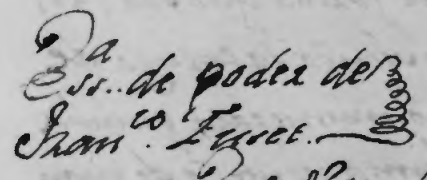 Ess.ª de poder de
Fran.co Turet.